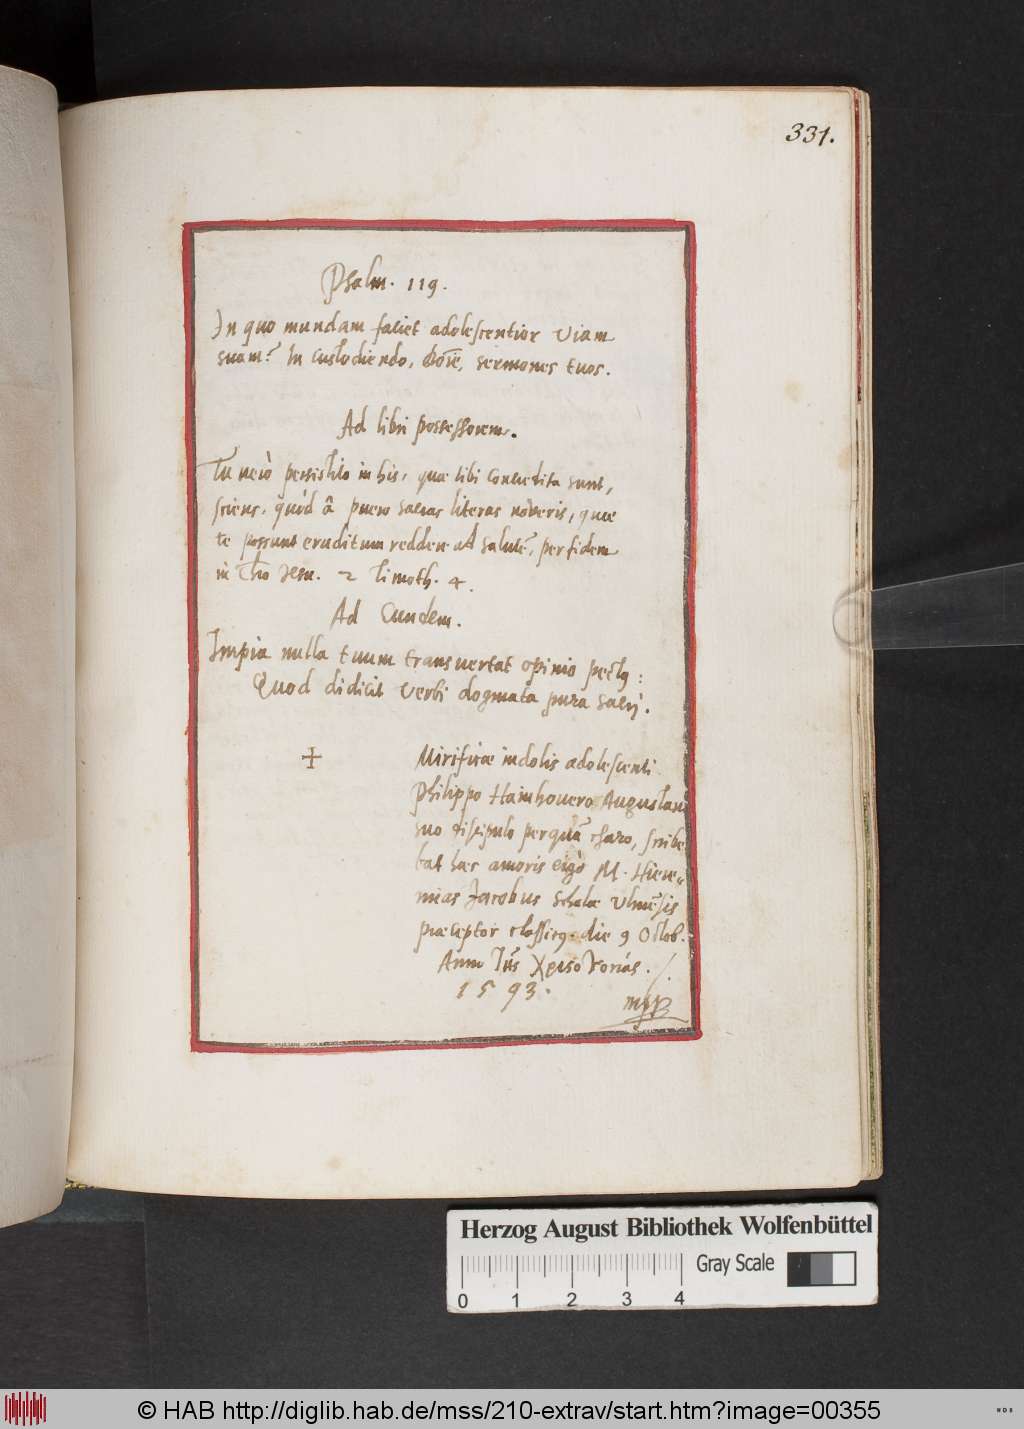 331.
Psalm. 119.
In quo mundam faciet adolescentior viam
suam? In custodiendo, Dōīe, sermones tuos.
Ad libri possessorem.
Tu verò persistito in his, quæ tibi concredita sunt,
sciens, quòd â puero sacras literas nôveris, quæ
te possunt eruditum reddere ad salutē, per fidem
in Chō Jesu. 2 Timoth. 4.
Ad Eundem.
Impia nulla tuum transvertat opinio pectꝰ:
Quod didicit verbi dogmata pura sacrj.
+ Mirificæ indolis adolescenti
Philippo Hainhovero Augustano
suo discipulo perquā charo, scribe
bat hæc amoris ergò M. Hiere=
mias Jacobus scholæ Ulmēsis
præceptor classicꝰ. die 9 Octob.
Anno τῆς χρισοτονίας.
1593.
mpp
Herzog August Bibliothek Wolfenbüttel
Gray Scale
0 1 2 3 4
© HAB http://diglib.hab.de/mss/210-extrav/start.htm?image=00355